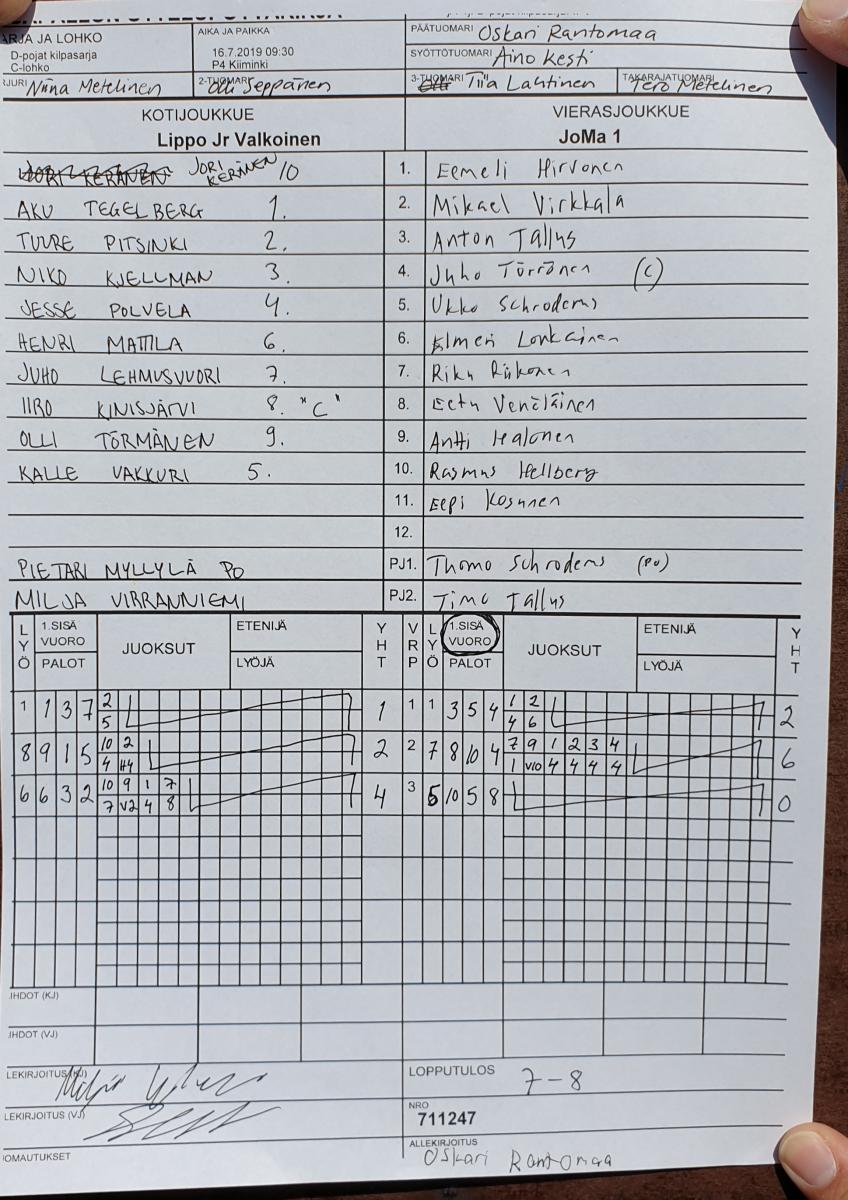 ARJA JA LOHKO
D-pojat kilpasarja
C-lohko
AIKA JA PAIKKA
16.7.2019 09:30
P4 Kiiminki
PÄÄTUOMARI Oskari Rantomaa
SYÖTTÖTUOMARI Aino Kesti
RJURI Niina Metelinen 2-TUOMARI Olli Seppänen 3-TUOMARI Tiia Lahtinen TAKARAJATUOMARI Tero Metelinen
KOTIJOUKKUE VIERASJOUKKUE
Lippo Jr Valkoinen JoMa 1
JORI KERÄNEN JORI KERÄNEN 10 1. Eemeli Hirvonen
AKU TEGELBERG 1. 2. Mikael Virkkala
TUURE PITSINKI 2. 3. Anton Tallus
NIKO KJELLMAN 3. 4. Juho Törrönen (C)
JESSE POLVELA 4. 5. Ukko Schroderus
HENRI MATTILA 6. 6. Elmeri Lonkainen
JUHO LEHMUSVUORI 7. 7. Riku Riikonen
IIRO KINISJÄRVI 8. "C" 8. Eetu Venäläinen
OLLI TÖRMÄNEN 9. 9. Antti Halonen
KALLE VAKKURI 5. 10. Rasmus Hellberg
11. Eepi Kosunen
12.
PIETARI MYLLYLÄ PO PJ1. Thomo Schroderus (PO)
MILJA VIRRANNIEMI PJ2. Timo Tallus
LYÖ 1.SISÄ VUORO PALOT JUOKSUT ETENIJÄ LYÖJÄ YHT VRP LYÖ 1.SISÄ VUORO PALOT JUOKSUT ETENIJÄ LYÖJÄ YHT
1 1 3 7 2 1 1 1 3 5 4 1 2 2
5 4 6
8 9 1 5 10 2 2 2 7 8 10 4 7 9 1 2 3 4 6
4 H4 1 V10 4 4 4 4
6 6 3 2 10 9 1 7 4 3 5 10 5 8 0
7 V2 4 8
IHDOT (KJ)
IHDOT (VJ)
LEKIRJOITUS (KJ) LOPPUTULOS 7-8
LEKIRJOITUS (VJ) NRO
711247
OMAUTUKSET ALLEKIRJOITUS
Oskari Rantomaa